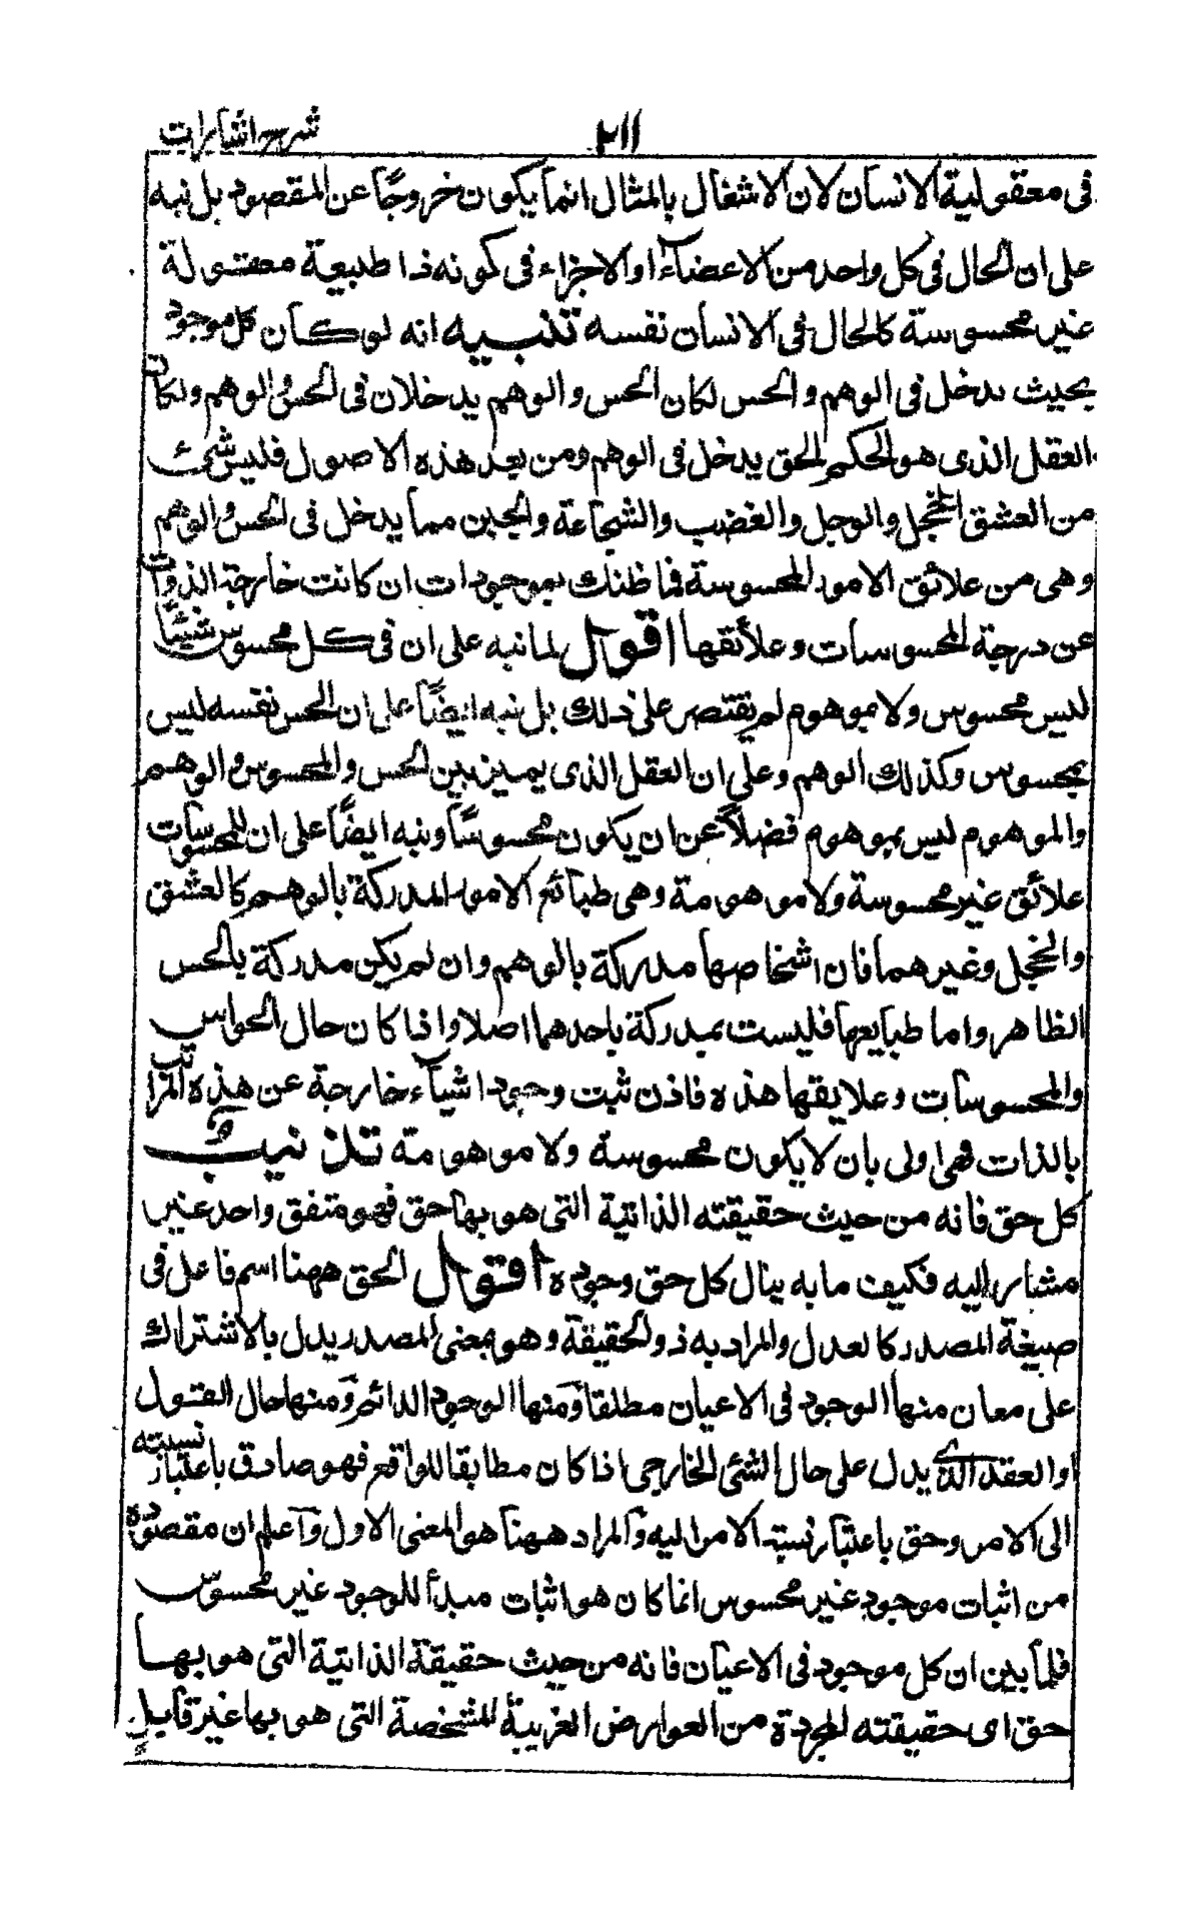 شرح اشارات
٢١١
فى معقولية الانسان لان الاشغال بالمثال انما يكون خروجًا عن المقصود بل نبه
على ان الحال فى كل واحد من الاعضاء او الاجزاء فى كونه ذا طبيعة معقولة
غير محسوسة كالحال فى الانسان نفسه تنبيه انه لو كان كل موجود
بحيث يدخل فى الوهم والحس لكان الحس والوهم يدخلان فى الحس والوهم ولكان
العقل الذى هو الحكم الحق يدخل فى الوهم ومن بعد هذه الاصول فليس شئ
من العشق والخجل والوجل والغضب والشجاعة والجبن مما يدخل فى الحس والوهم
وهى من علائق الامور المحسوسة فما ظنك بموجودات ان كانت خارجة الذوات
عن درجة المحسوسات وعلائقها اقول لما نبه على ان فى كل محسوس شيئًا
ليس محسوس ولا موهوم لم يقتصر على ذلك بل نبه ايضًا على ان الحس نفسه ليس
بمحسوس وكذلك الوهم وعلى ان العقل الذى يميز بين الحس والمحسوس والوهم
والموهوم ليس بموهوم فضلًا عن ان يكون محسوسًا ونبه ايضًا على ان للمحسوسات
علائق غير محسوسة ولا موهومة وهى طبائع الامور المدركة بالوهم كالعشق
والخجل وغيرهما فان اشخاصها مدركة بالوهم وان لم يكن مدركة بالحس
الظاهر واما طبايعها فليست بمدركة باحدهما اصلا واذا كان حال الحواس
والمحسوسات وعلايقها هذه فاذن ثبت وجود اشياء خارجة عن هذه المراتب
بالذات فهى اولى بان لا يكون محسوسة ولا موهومة تذنيب
كل حق فانه من حيث حقيقته الذاتية التى هو بها حق فهو متفق واحد غير
مشار اليه فكيف ما به ينال كل حق وجوده اقول الحق ههنا اسم فاعل فى
صيغة المصدر كالعدل والمراد به ذو الحقيقة وهو بمعنى المصدر يدل بالاشتراك
على معان منها الوجود فى الاعيان مطلقا ومنها الوجود الدائم ومنها حال القول
او العقد الذى يدل على حال الشئ الخارجى اذا كان مطابقا للواقع فهو صادق باعتبار نسبته
الى الامر وحق باعتبار نسبة الامر اليه والمراد ههنا هو المعنى الاول واعلم ان مقصوده
من اثبات موجود غير محسوس انما كان هو اثبات مبدأ للوجود غير محسوس
فلما بين ان كل موجود فى الاعيان فانه من حيث حقيقة الذاتية التى هو بها
حق اى حقيقته المجردة من العوارض الغريبة المشخصة التى هى بها غير قابل